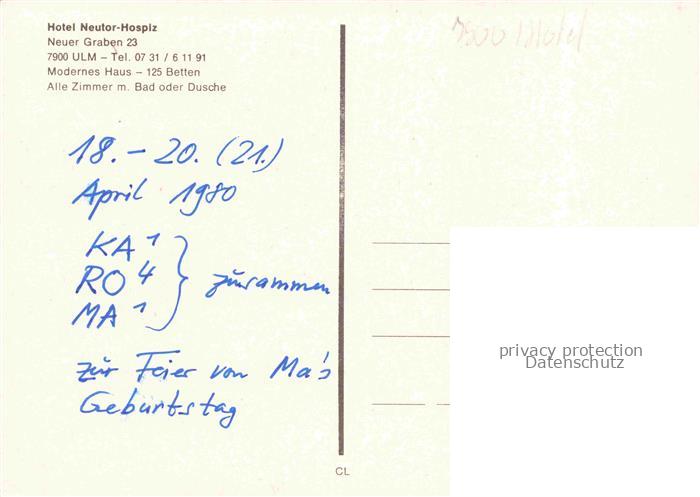 Hotel Neutor-Hospiz
Neuer Graben 23
7900 ULM – Tel. 07 31 / 6 11 91
Modernes Haus – 125 Betten
Alle Zimmer m. Bad oder Dusche
7900 Hotel
18. – 20. (21.)
April 1980
KA 1
RO 4 } zusammen
MA 1
zur Feier von Ma's
Geburtstag
privacy protection
Datenschutz
CL